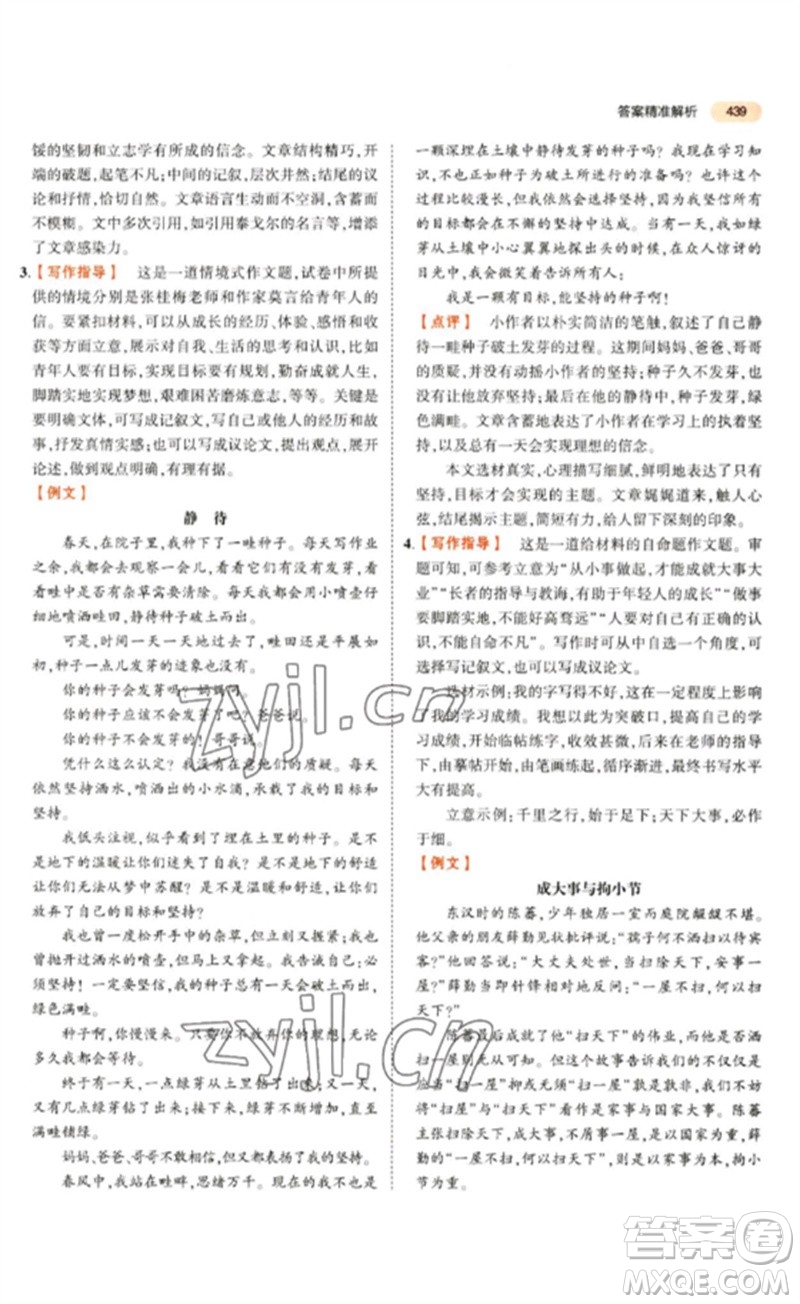 答案精准解析 439
馁的坚韧和立志学有所成的信念。文章结构精巧,开
端的破题,起笔不凡;中间的记叙,层次井然;结尾的议
论和抒情,恰切自然。文章语言生动而不空洞,含蓄而
不模糊。文中多次引用,如引用泰戈尔的名言等,增添
了文章感染力。
3.【写作指导】 这是一道情境式作文题,试卷中所提
供的情境分别是张桂梅老师和作家莫言给青年人的
信。要紧扣材料,可以从成长的经历、体验、感悟、收
获等方面立意,展示对自我、生活的思考和认识,可以
是树立目标实现梦想,实现目标要有规划,勤奋成就人生,
脚踏实地实现梦想,艰难困苦磨炼意志,等等。关键是
要明确文体,可写成记叙文,写自己或他人的经历和故
事,抒发真情实感;也可以写成议论文,提出观点,展开
论述,做到观点明确,有理有据。
【例文】
静 待
春天,在院子里,我种下了一畦种子。我在写作业
之余,我都会去观察一会儿,看看种子有没有发芽的迹
象,看看畦中是否有杂草需要清除。我每天用小喷壶仔
细地喷洒畦土,静待种子破土而出。
可是,时间一天一天地过去了,畦田还是平展如
初,种子一点儿发芽的迹象也没有。
你的种子会发芽吗?妈妈问。
你的种子应该不会发芽了吧?爸爸说。
你的种子不会发芽的!哥哥说。
凭什么这么认定?我没有在意他们的质疑。我
依然坚持洒水,喷洒的小水滴,承载了我的坚持。
我低头注视,似乎看到了埋在土里的种子。是不
是地下的温暖让你们迷失了自我?是不是地下的舒适
让你们无法从梦中苏醒?是不是温暖和舒适,让你们
放弃了自己的目标和坚持?
我也曾一度松开手中的杂草,但立刻又握紧;我也
曾想抛开手中洒水的喷壶,但又立刻告诉自己;必
须坚持!一定要坚信,你会破土而出,你会发芽生长,
绿色满畦。
种子啊,你慢慢来。只要你不放弃发芽的理想,无论
多久我都会等待。
终于有一天,一点绿芽从土里钻了出来。一天,两
天,一点一点绿芽都钻了出来;一畦的绿芽,充满生机,
一畦铺绿。
妈妈、爸爸、哥哥不再诧异我的坚持。
春风中,我站在畦畔,思绪万千。现在的我不也是
一颗深埋在土壤中静待发芽的种子吗?我现在学习知
识,不正如种子为破土所进行的准备吗?也许这个
过程比较漫长,但我依然会选择坚持,因为我坚信所有
的目标都会在不懈的坚持中实现。当有一天,我如绿
芽从土壤中小心翼翼地探出头的时候,在众人惊讶的
目光中,我会微笑着告诉所有人:
我是一颗有目标,能坚持的种子啊!
【点评】 小作者以朴实简洁的笔触,叙述了自己静
待一畦种子破土发芽的过程。这期间妈妈、爸爸、哥哥
的质疑,并没有动摇小作者的坚持;种子久不发芽,也
没有让他放弃坚持;最后,在他的静待中,种子发芽,绿
色满畦。文章含蓄地表达了小作者在学习上的执着坚
持,以及总有一天会实现理想的信念。
本文选材真实,心理描写细腻,鲜明地表达了只有
坚持,目标才会实现的主题。文章娓娓道来,触动人心
弦,结尾揭示主题,简短有力,给人留下深刻的印象。
4.【写作指导】 这是一道给材料的自命题作文题。审
题可知,可参考立意为“从小事做起,才能成就大事大
业”“长者的指导与教诲,有助于年轻人的成长”“做事
要脚踏实地,不能好高骛远”“人要对自己有正确的认
识,不能自命不凡”。写作时可从中选择一个角度,可
选择写记叙文,可以写成议论文。
选材示例:我的字写得不好,这在一定程度上影响了
我的学习成绩。我以此为突破口,提高自己的学习成
绩。开始临帖练字,收效甚微,后来在老师的指导下,
由摹帖开始,由基本笔画练起,循序渐进,提高了书写水平
大有提高。
立意示例:千里之行,始于足下;天下大事,必作
于细。
【例文】
成大事与拘小节
东汉时的陈蕃,少年独居一室而庭院龌龊不堪。
他父亲的朋友薛勤见状批评说:“孺子何不洒扫以待宾
客?”他回答说:“大丈夫处世,当扫天下,安事一
屋?”薛勤当即针锋相对地反问:“一屋不扫,何以扫天
下?”
陈蕃最后成就了他“扫天下”的伟业,而他是否洒
扫一屋则无人知晓。但这个故事所揭示的不仅仅是
应当“扫屋”抑或“扫天下”的问题,它还可以引申开来,
把“扫屋”与“扫天下”看作是家事与国家大事。陈蕃
主张扫天下,成大事,不屑事一屋,是以国事为重;薛
勤的“一屋不扫,何以扫天下”,则是以家事为本,拘小
节为重。
zyjl.cn
zyjl.cn
答案圈
MXQE.COM